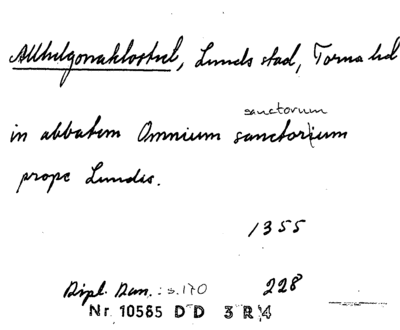 Allhelgonaklostret, Lunds stad, Torna hd
sanctorum
in abbatem Omnium sanctorium
prope Lundis.
1355
Dipl. Dan.: s. 170 228
Nr. 10585 DD 3 R 4